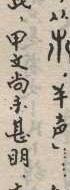 羊声
甲文尚未甚明，